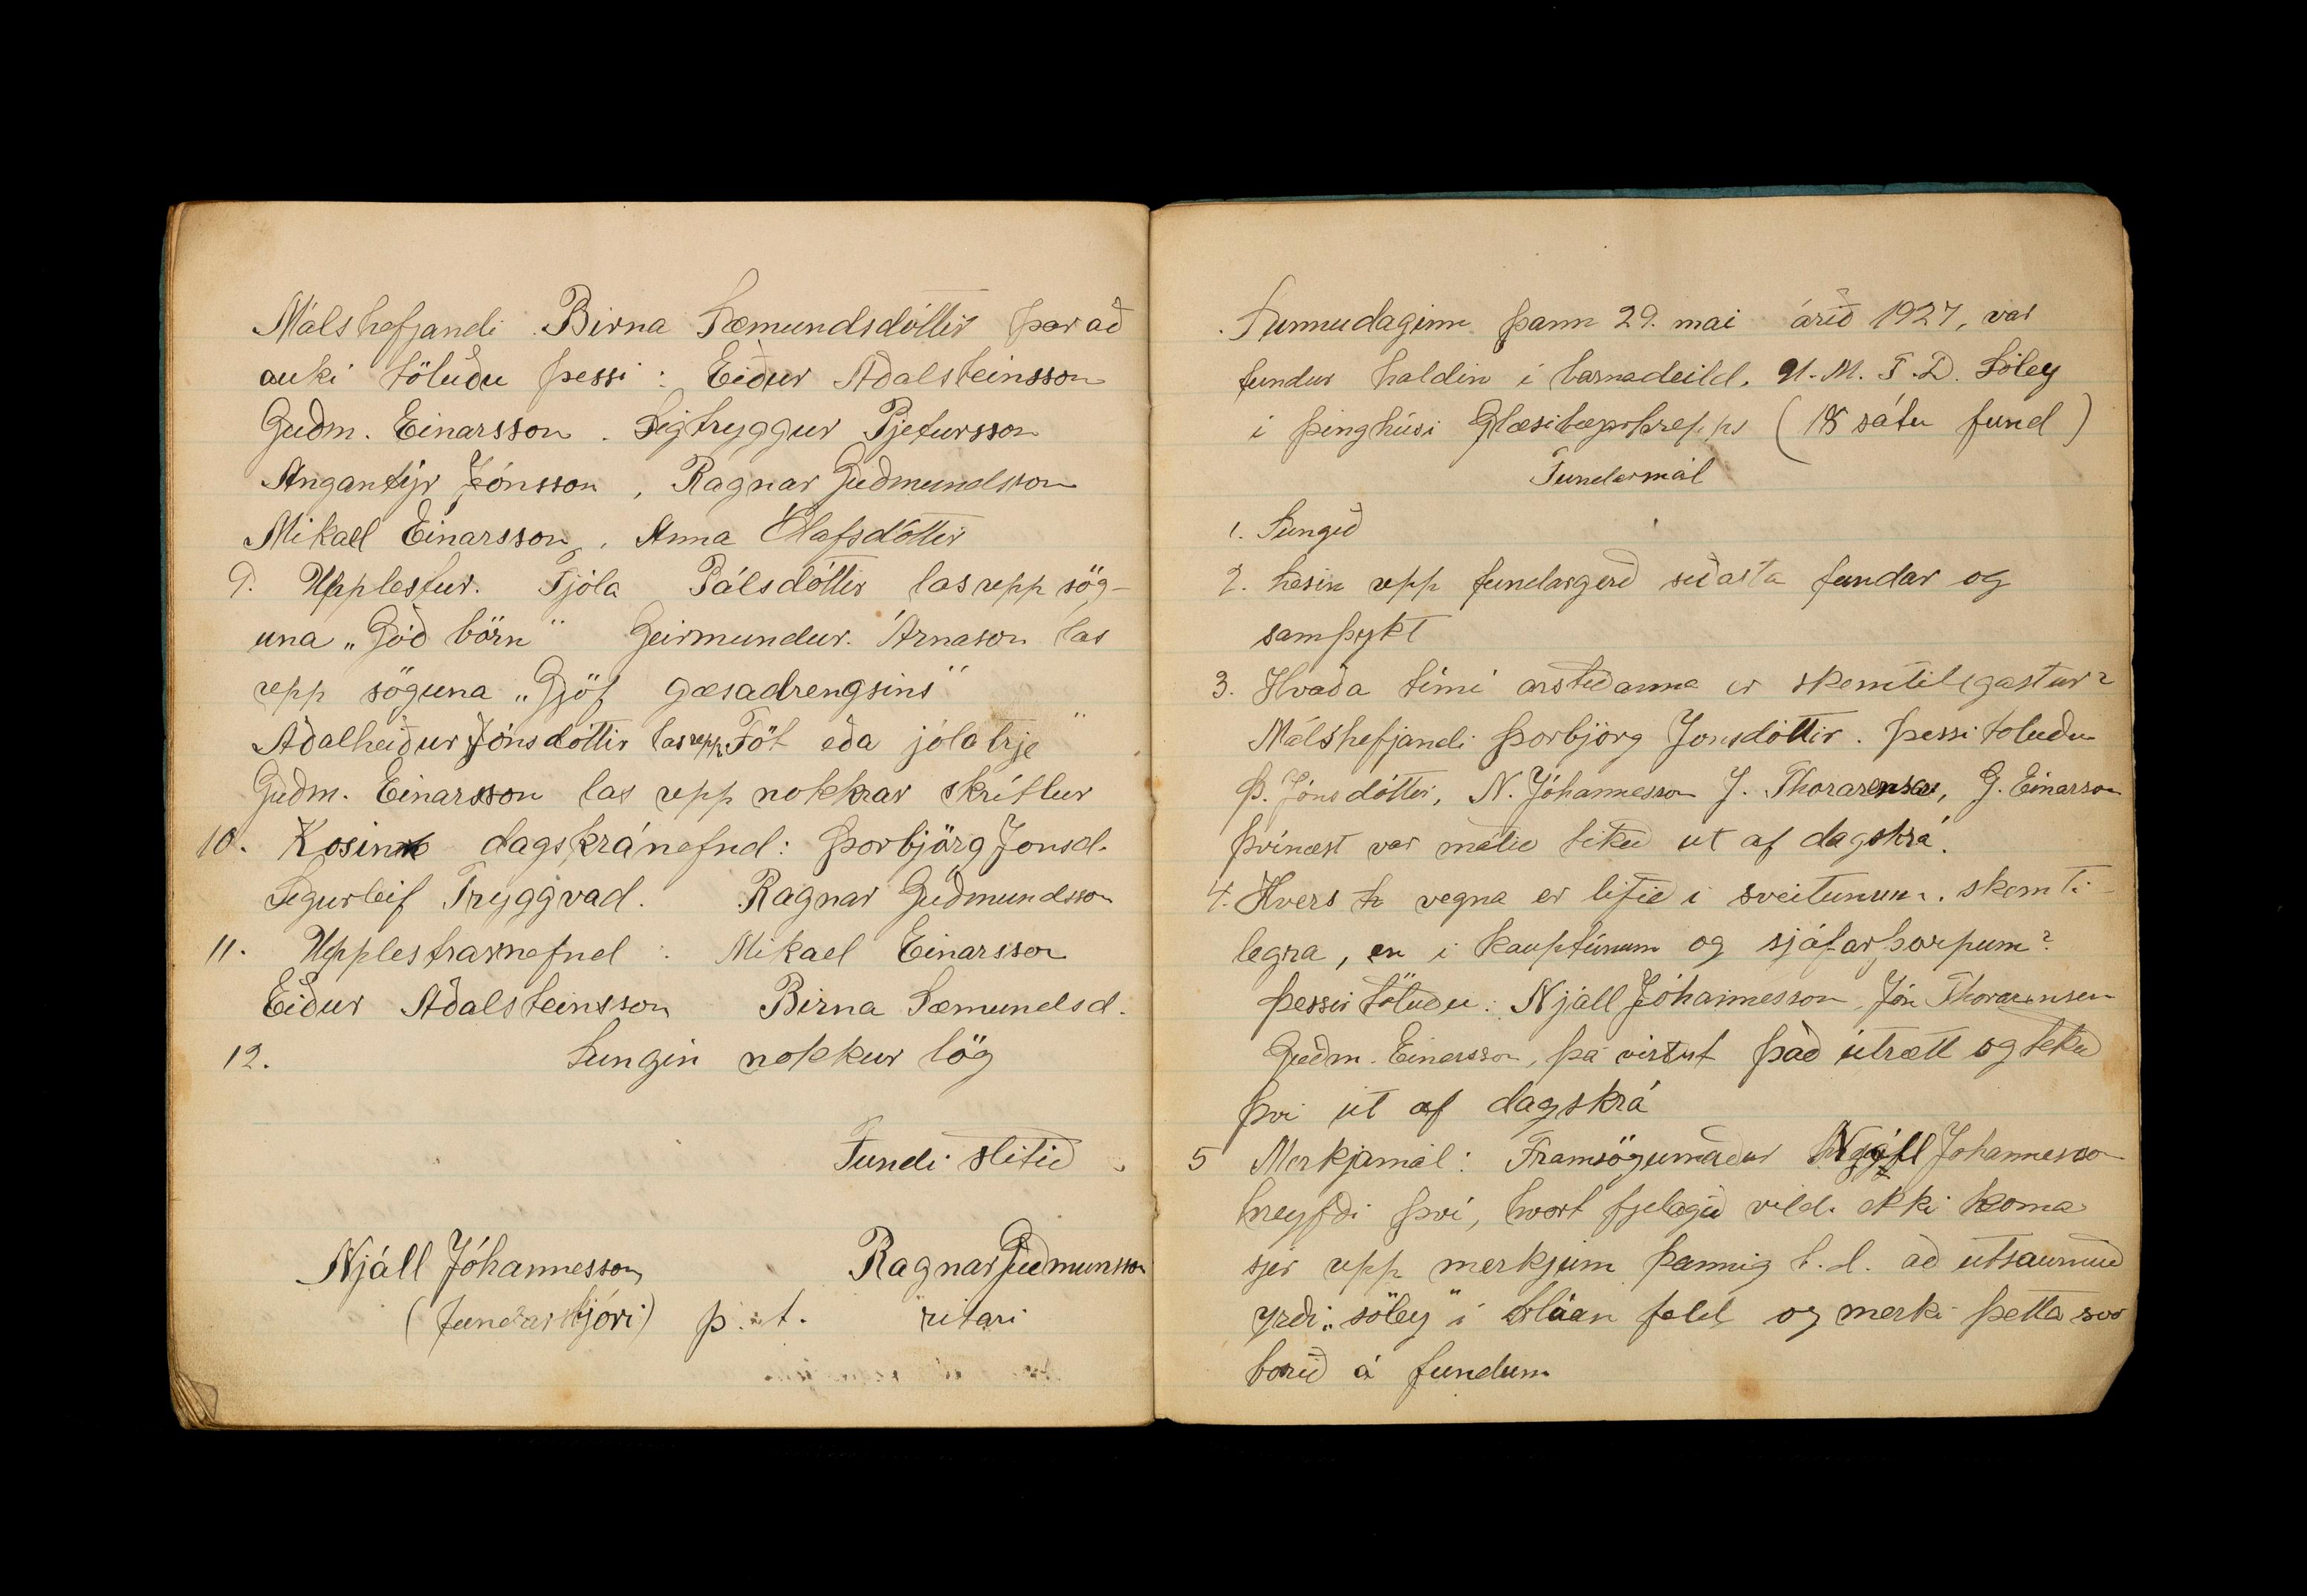 Málshefjandi Birna Sæmundsdóttir þar að
auki töluðu þessi: Eiður Aðalsteinsson
Guðm. Einarsson. Sigtryggur Pjetursson
Angantýr Jónsson, Ragnar Guðmundsson
Mikael Einarsson, Anna Ólafsdóttir
9. Upplestur. Fjóla Pálsdóttir las upp sög-
una „Góð börn" Geirmundur Árnason las
upp söguna „Gjöf gæsadrengsins"
Aðalheiður Jónsdóttir las upp Föt eða jólatrje"
Guðm. Einarsson las upp nokkrar skrítlur
10. Kosin dagskránefnd: Þorbjörg Jonsd.
Sigurleif Tryggvad. Ragnar Guðmundsson
11. Upplestrarnefnd: Mikael Einarsson
Eiður Aðalsteinsson Birna Sæmundsd.
12. Sungin nokkur lög
Fundi slitið.
Njáll Jóhannesson Ragnar Guðmunsson
(fundarstjóri) þ. t. ritari
Sunnudaginn þann 29. mai árið 1927, var
fundur haldin i barnadeild. U. M. F. D. Sóley
i þinghúsi Glæsibæjarhrepps (18 sátu fund)
Fundarmál
1. Sungið
2. Lesin upp fundargerð siðasta fundar og
samþykt
3. Hvaða tími arstiðanna er skemtilegastur?
Málshefjandi Þorbjörg Jonsdóttir. Þessi toluðu
Þ. Jónsdóttir, N. Jóhannesson J. Thorarensen, G. Einarsson
Þvínæst var málið tekið ut af dagskrá.
4. Hvers vegna er lifið i sveitunum skemti-
legra, en i kauptúnum og sjáfarþorpum?
Þessir töluðu: Njáll Jóhannesson, Jón Thorarensen
Guðm. Einarsson, þá virtist það útrætt og tekið
því út af dagskrá
5 Merkjamál: Framsögumaður Njáll Johannesson
hreyfði því, hvort fjelagið vildi ekki koma
sjer upp merkjum þannig t.d. að útsaumuð
yrði „sóley" i bláan feld og merki þetta svo
borið á fundum